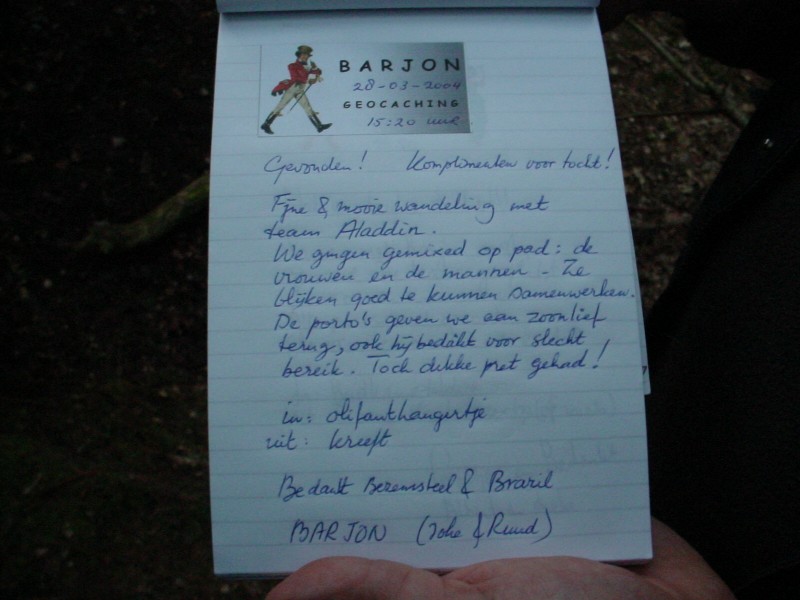 BARJON
28-03-2004
GEOCACHING
15:20 uur
Gevonden! Komplimenten voor tocht!
Fijne & mooie wandeling met
team Aladdin.
We gingen gemixed op pad: de
vrouwen en de mannen - Ze
blijken goed te kunnen samenwerken.
De porto's geven we aan zoonlief
terug, ook hij bedankt voor slecht
bereik. Toch dikke pret gehad!
in: olifanthangertje
uit: kreeft
Bedankt Bezemsteel & Brazil
BARJON (Joke & Ruud)